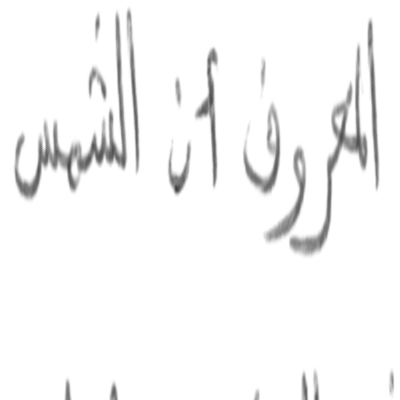 المعروف أن الشمس